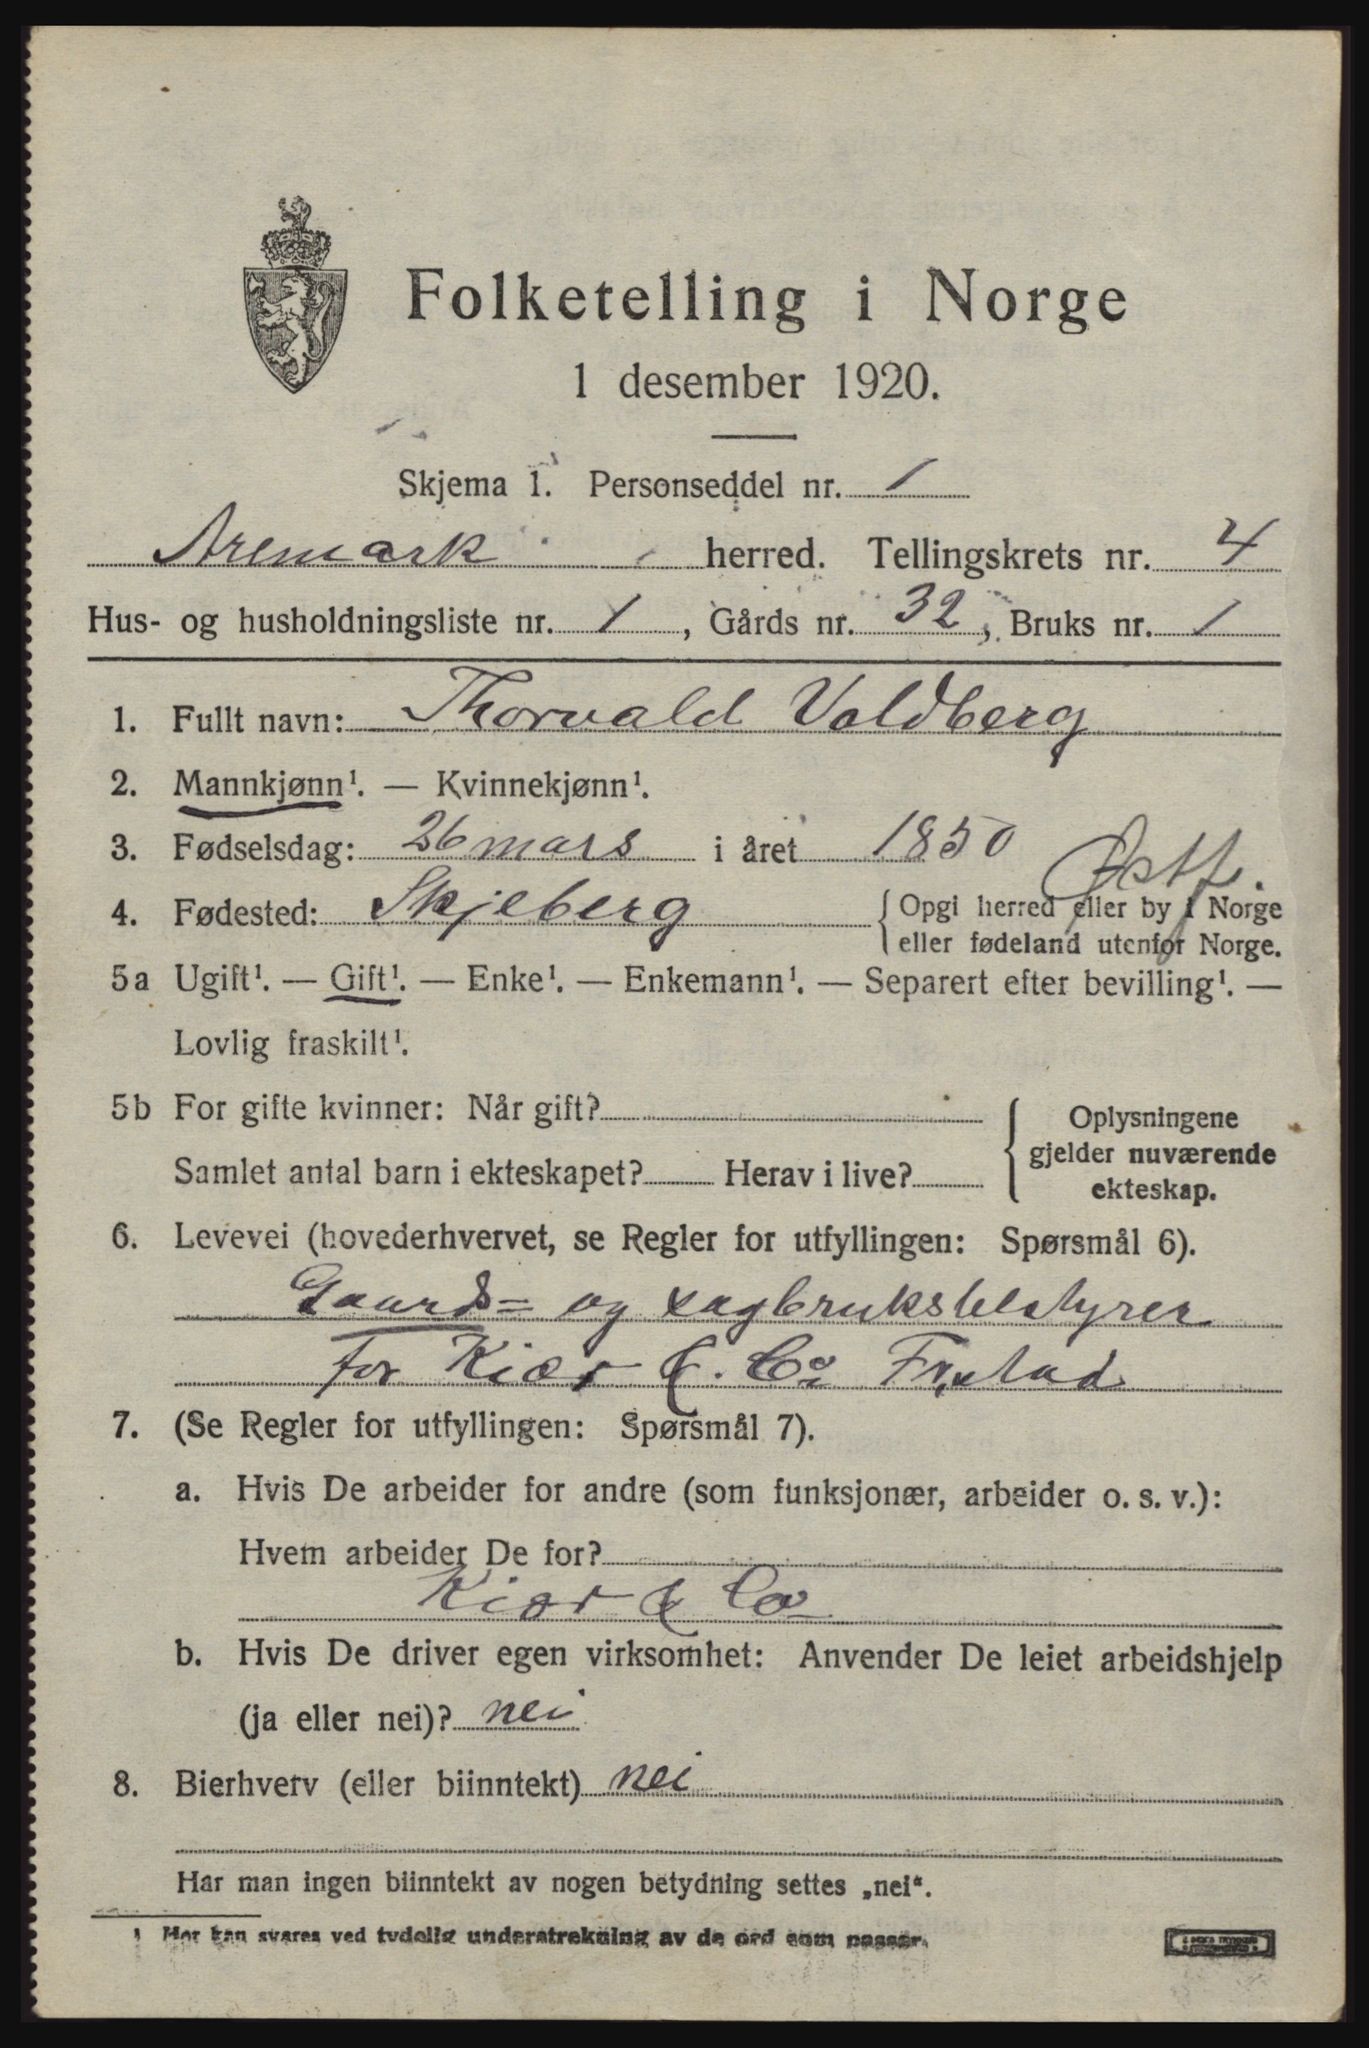 Folketelling i Norge
1 desember 1920.
Skjema 1. Personseddel nr. 1
Aremark herred. Tellingskrets nr. 4
Hus- og husholdningsliste nr. 1, Gårds nr. 32, Bruks nr. 1
1. Fullt navn: Thorvald Voldberg
2. Mannkjønn¹. — Kvinnekjønn¹.
3. Fødselsdag: 26 mars i året 1850
Østf.
4. Fødested: Skjeberg { Opgi herred eller by i Norge
eller fødeland utenfor Norge.
5a Ugift¹. — Gift¹. — Enke¹. — Enkemann¹. — Separert efter bevilling¹. —
Lovlig fraskilt¹.
5b For gifte kvinner: Når gift?
Samlet antal barn i ekteskapet? Herav i live?
{ Oplysningene
gjelder nuværende
ekteskap.
6. Levevei (hovederhvervet, se Regler for utfyllingen: Spørsmål 6).
Gaards= og sagbruksbestyrer
for Kiær & Co Fr.stad
7. (Se Regler for utfyllingen: Spørsmål 7).
a. Hvis De arbeider for andre (som funksjonær, arbeider o. s. v.):
Hvem arbeider De for?
Kiær & Co
b. Hvis De driver egen virksomhet: Anvender De leiet arbeidshjelp
(ja eller nei)? nei
8. Bierhverv (eller biinntekt) nei
Har man ingen biinntekt av nogen betydning settes „nei“.
¹ Her kan svares ved tydelig understrekning av de ord som passer.